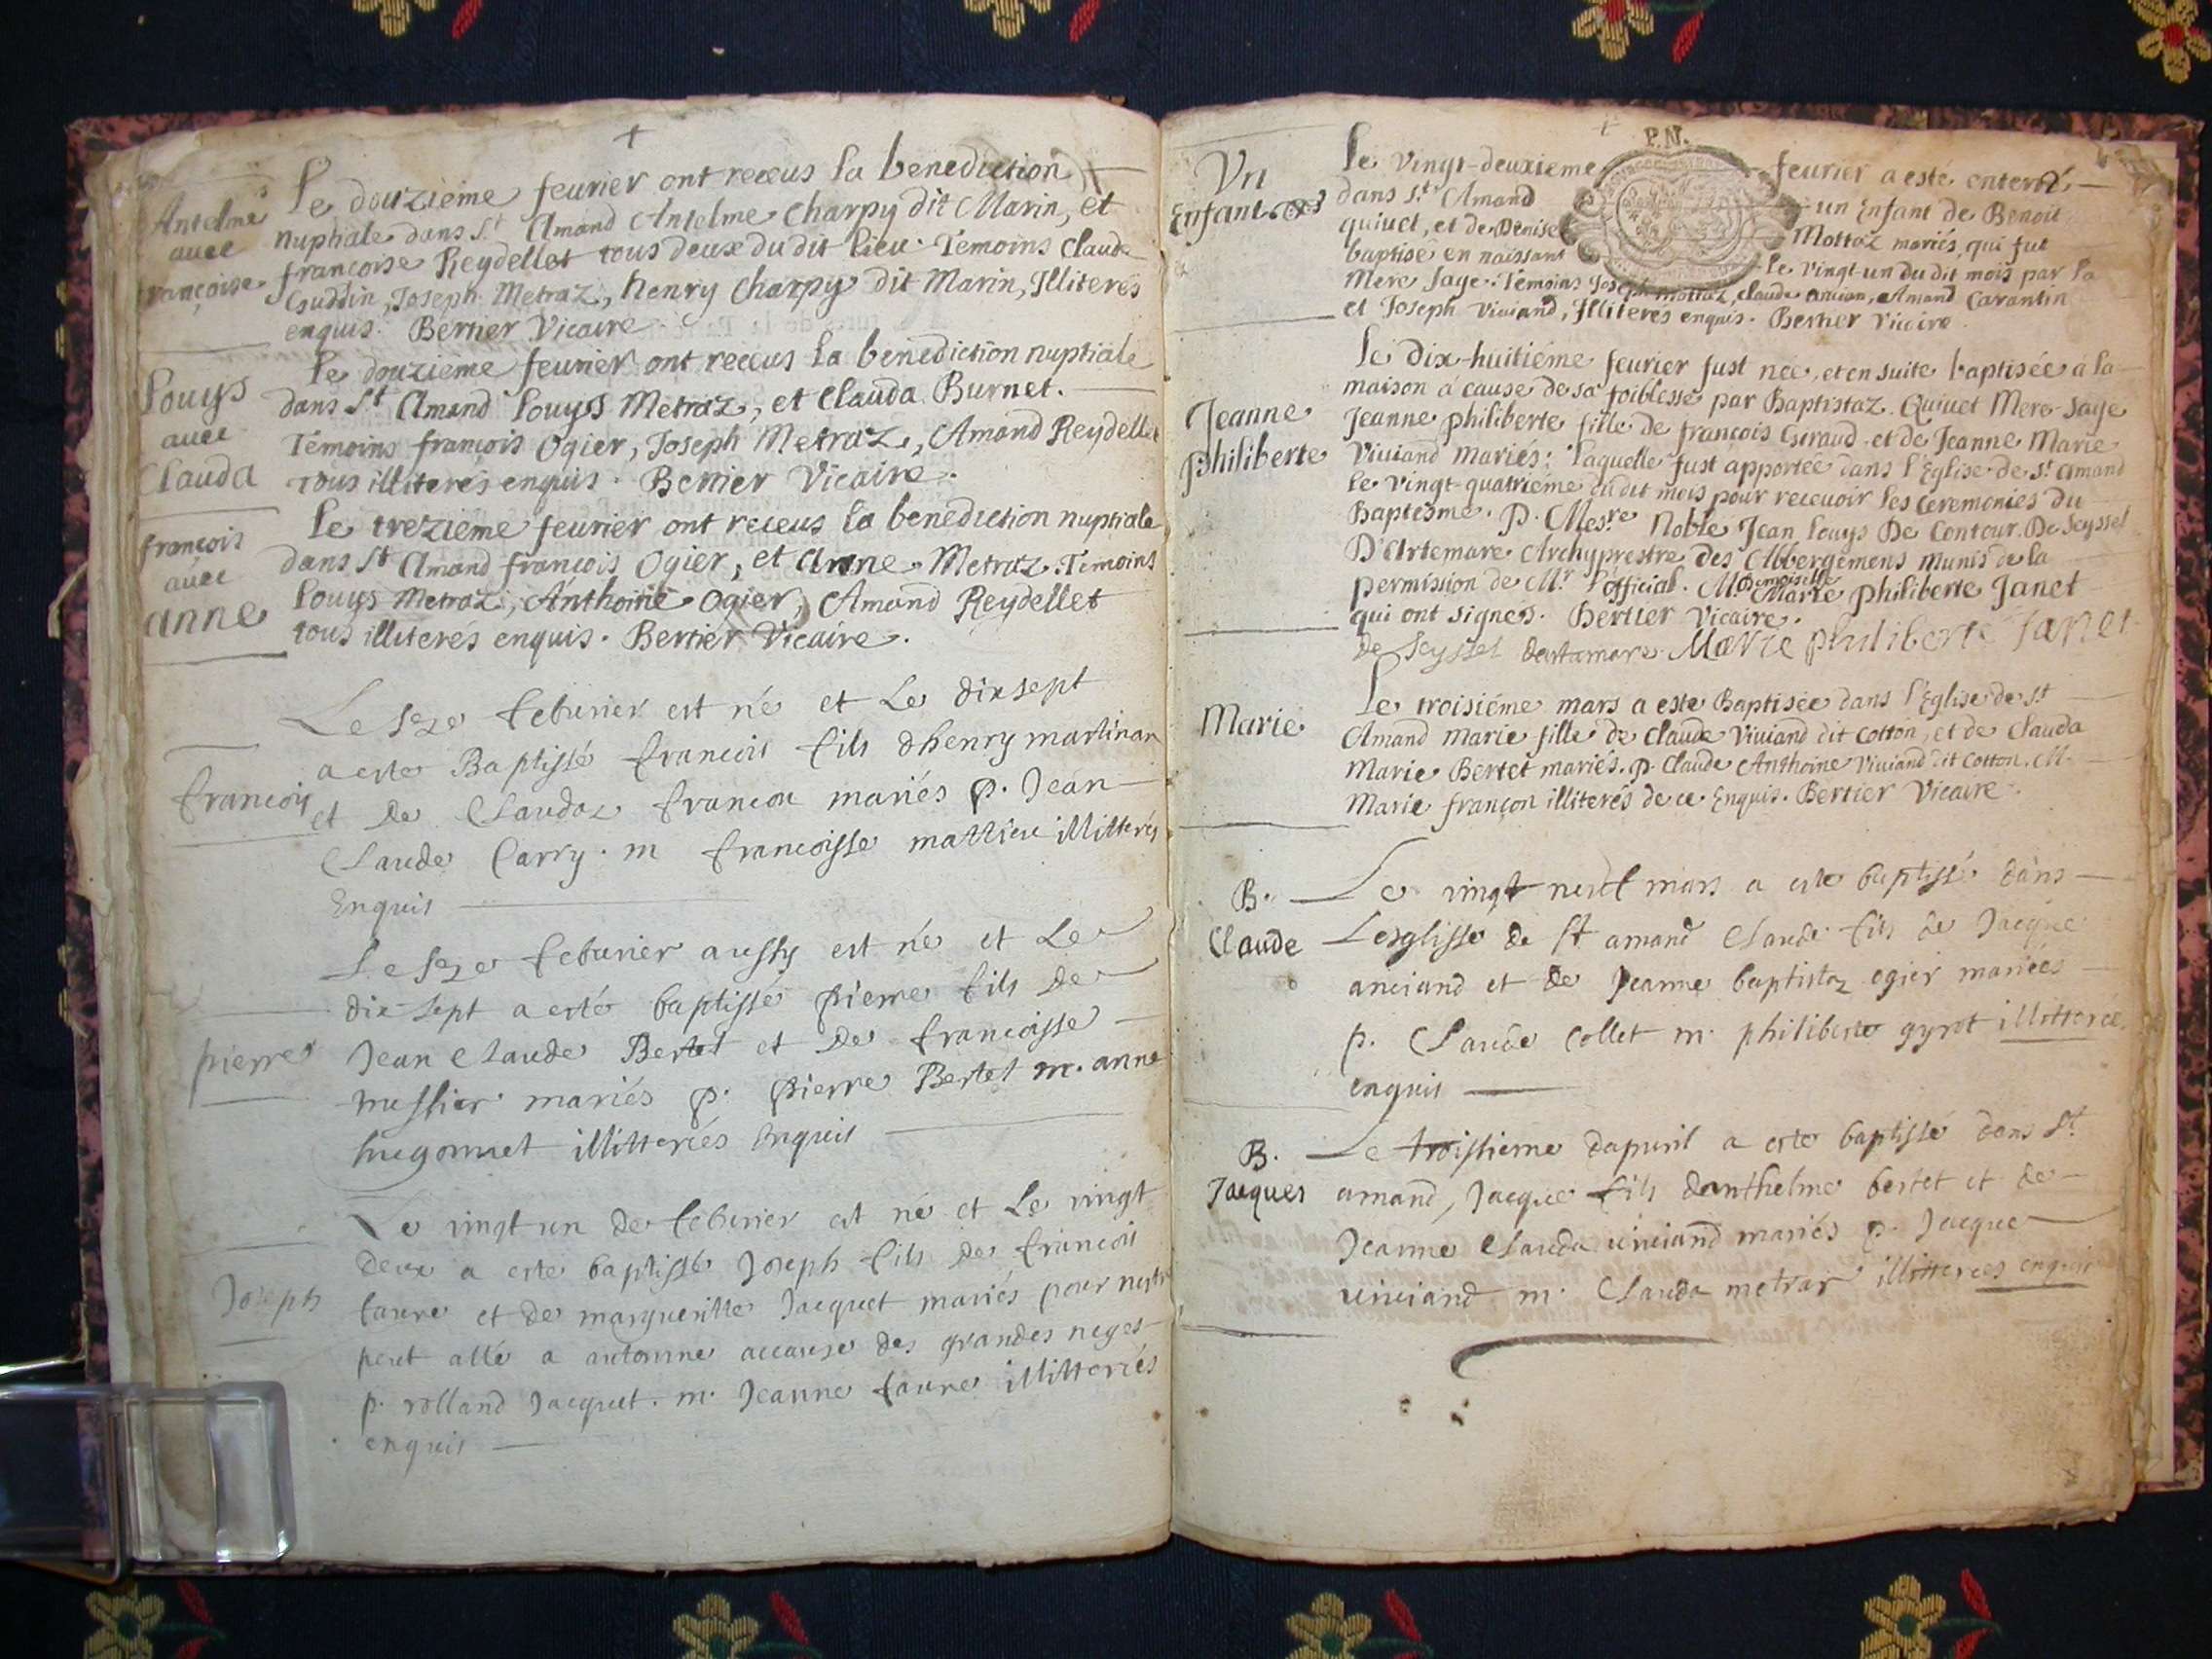 Antelme
avec
françoise
Le douziéme feurier ont receus la benediction
nuptiale dans St Amand Antelme Charpy dit Marin, et
françoise Reydellet tous deux du dit lieu. Temoins Claude
Guddin, Joseph Metraz, henry Charpy dit Marin, Illiterés
enquis. Bertier Vicaire
Louys
auec
Clauda
Le douziéme feurier ont receus la benediction nuptiale
dans St Amand Louys Metraz, et Clauda Burnet.
Témoins françois Ogier, Joseph Metraz, Amand Reydellet
tous illiterés enquis. Bertier Vicaire.
françois
auec
anne
Le treziéme feurier ont receus la benediction nuptiale
dans St Amand françois Ogier, et Anne Metraz. Temoins
Louys Metraz, Anthoine Ogier, Amand Reydellet
tous illiterés enquis. Bertier Vicaire.
francois
Le seze feburier est né et Le dixsept
a esté Baptissé francois fils dhenry martinan
et de Claudaz francon mariés p. Jean
Claude Carry. m francoisse mathieu illitterés
Enquis
pierre
Le seze feburier aussy est né et Le
dix-sept a esté baptissé pierre fils de
Jean Claude Bertet et de francoisse
mussier mariés p. pierre Bertet m. anne
hugonnet illitterés Enquis
Joseph
Le vingt un de feburier est né et Le vingt
deux a este baptissé Joseph fils de francois
faure et de margueritte Jacquet mariés pour
peut allé a automne accause des grandes neges
p. rolland Jacquet. m. Jeanne faure illitterés
enquis
P.N.
Vn
Enfant
Le Vingt-deuxieme feurier a esté enterré
dans St Amand un Enfant de Benoit
quiuet, et de Denise Mottaz mariés, qui fut
baptisé en naissant le vingt-un du dit mois par la
Mere Sage. Témoins Joseph Mottaz, Claude Ancian, Amand Carantin
et Joseph Viuiand, Illiterés enquis. Bertier Vicaire.
Jeanne
philiberte
Le Dix-huitiéme feurier fust née, et en suite baptisée à la
maison a cause de sa foiblesse par Baptistaz Quiuet Mere-Sage
Jeanne philiberte fille de françois Giraud et de Jeanne Marie
Viuiand mariés; laquelle fust apportée dans l'Eglise de St Amand
le vingt-quatrieme du dit mois pour receuoir les Ceremonies du
Baptesme. P. Mesre Noble Jean Louys De Contour De Seyssel
D'Artemare Archyprestre des Abbergemens Munis de la
permission de Mr l'official. M. Demoiselle Marie philiberte Janet
qui ont signés. Bertier Vicaire.
de Seyssel dartamare Marie philiberte Janet
Marie
Le troisiéme mars a esté Baptisée dans l'Eglise de St
Amand marie fille de Claude Viuiand dit Cotton, et de Clauda
Marie Bertet mariés. p. Claude Anthoine Viuiand dit Cotton. M.
Marie françon illiterés de ce Enquis. Bertier Vicaire.
B.
Claude
Le vingt neuf mars a esté baptissé dans
Lesglisse de St amand Claude fils de Jacque
anciand et de Jeanne baptistaz ogier mariées
p. Claude Collet m. philiberte gyrot illitterée
enquis
B.
Jacques
Le troissieme dapuril a este baptissé dans St
amand, Jacque fils danthelme bertet et de
Jeanne Clauda viuiand mariés p. Jacque
viuiand m. Clauda metrar illitterees enquis